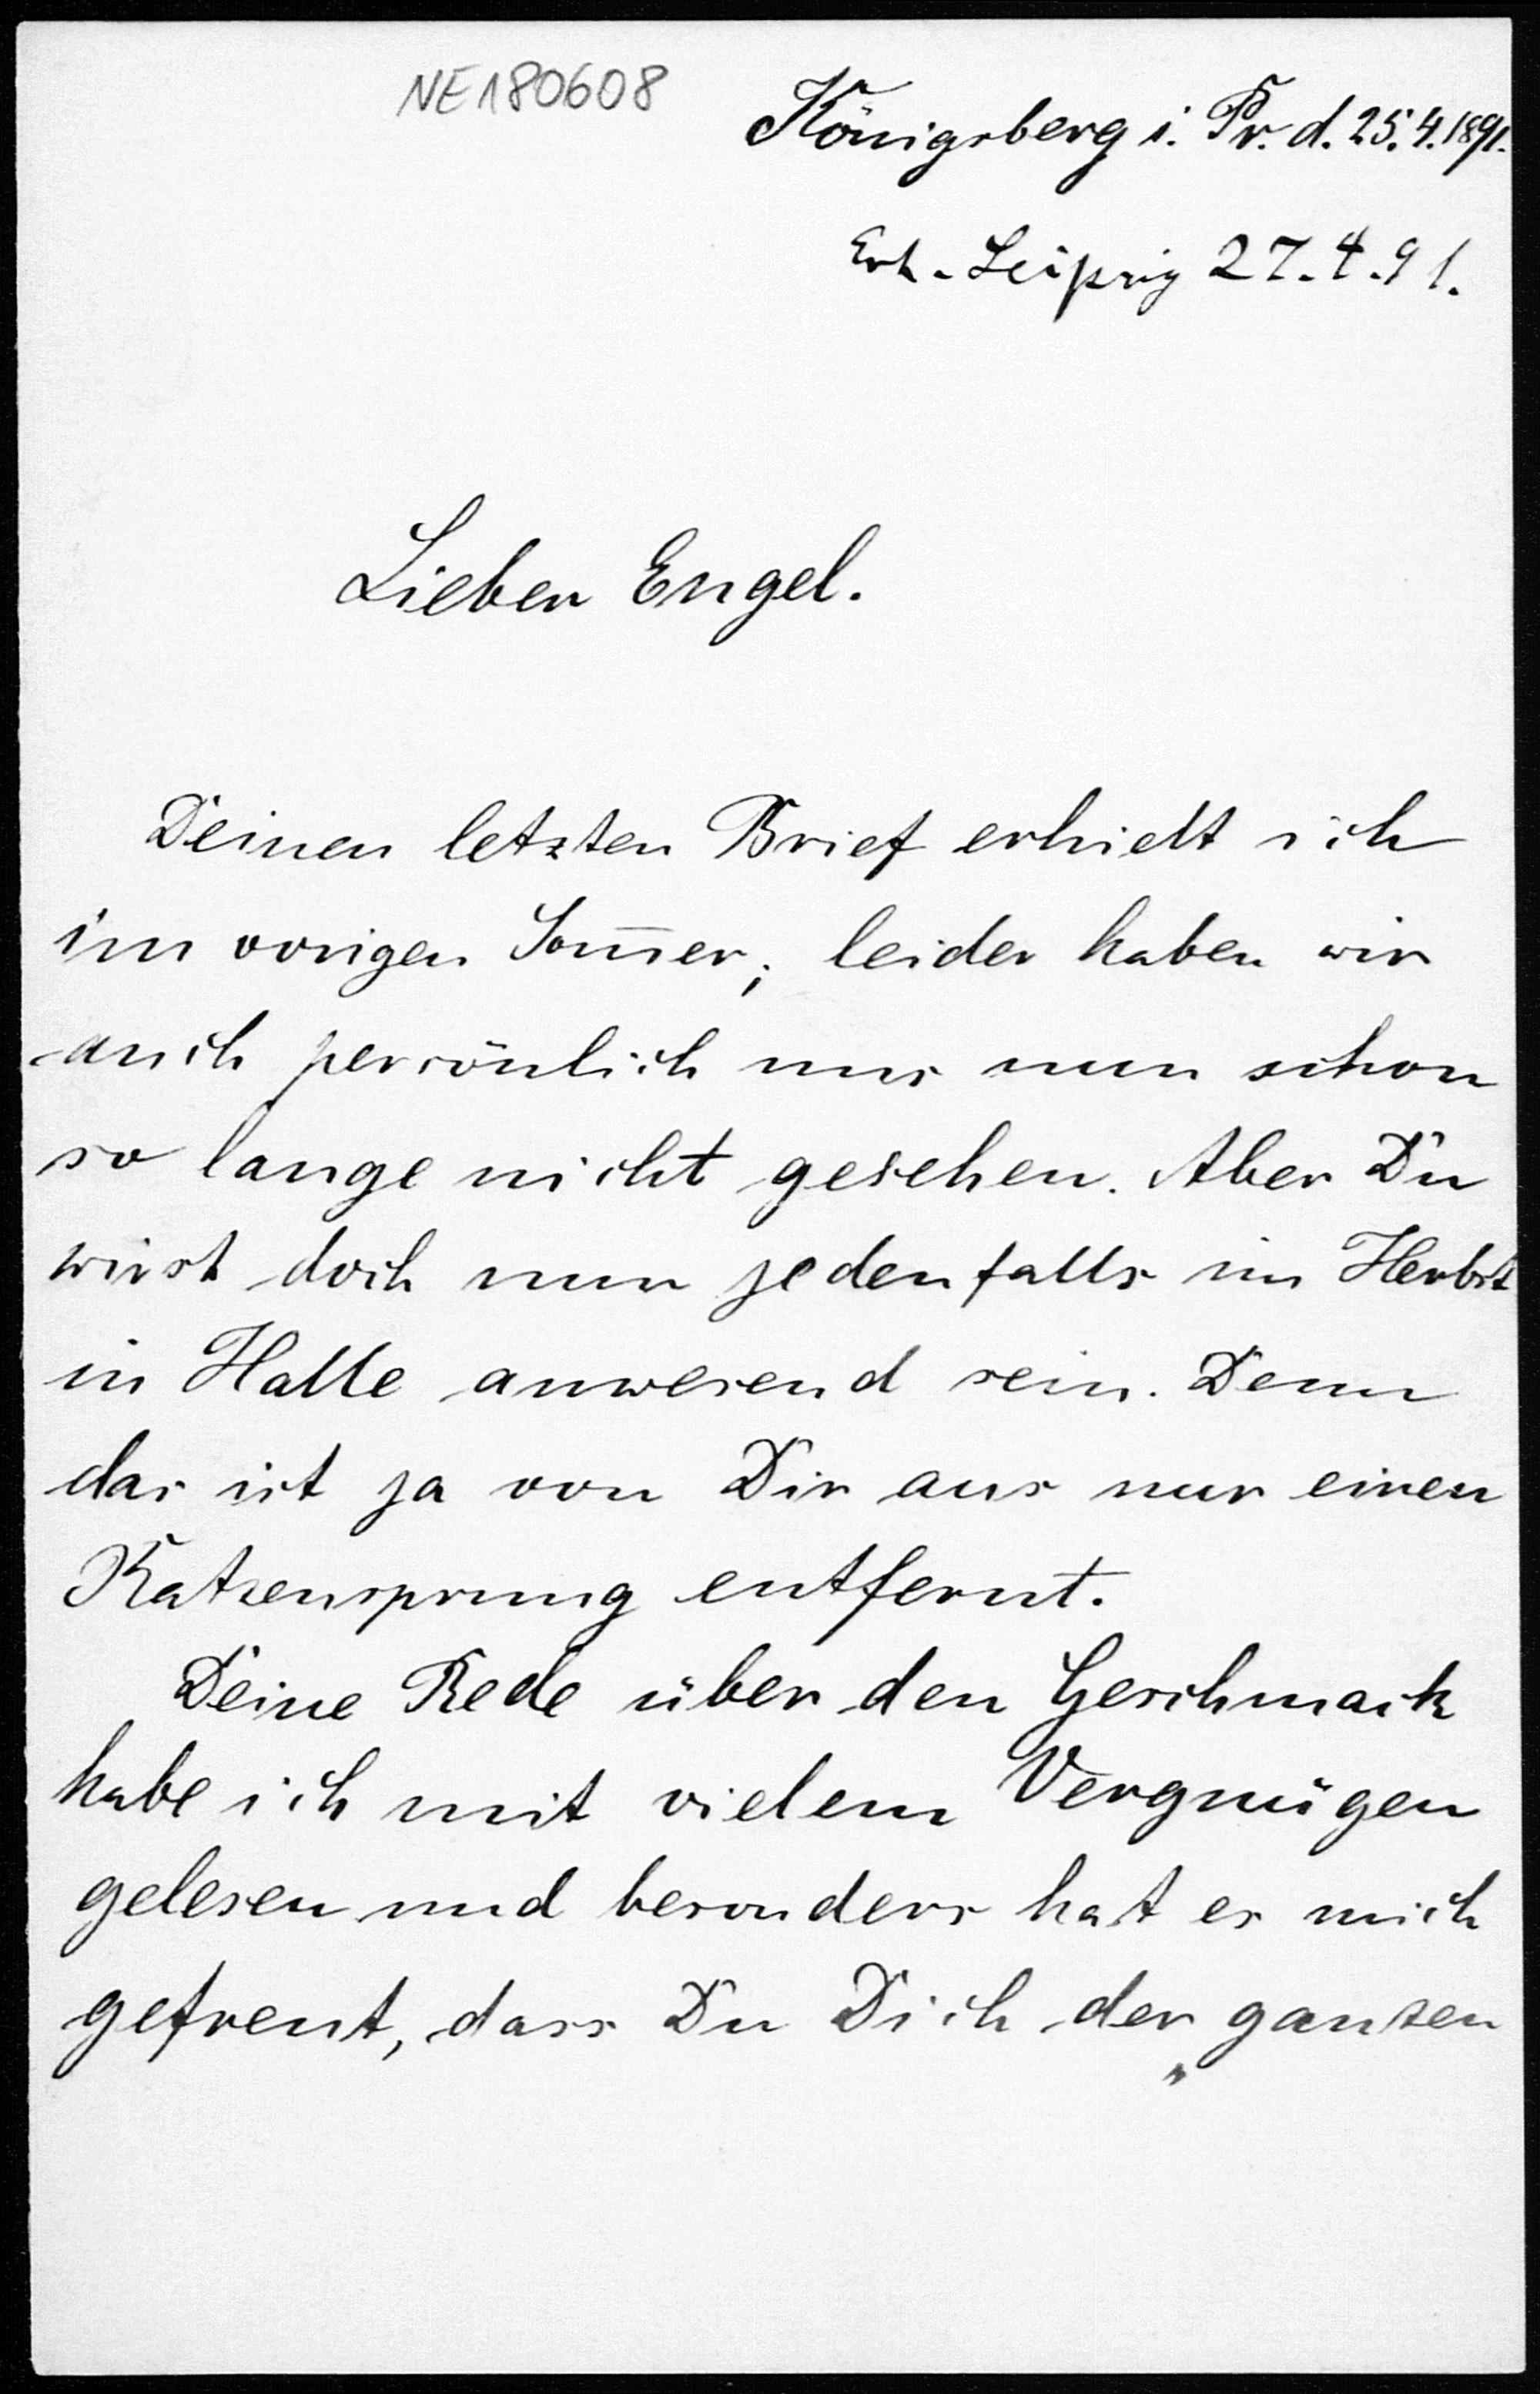 NE180608
Königsberg i. Pr. d. 25.4.1891.
Erh. Leipzig 27.4.91.
Lieber Engel.
Deinen letzten Brief erhielt ich
im vorigen Som̅er; leider haben wir
auch persönlich uns nun schon
so lange nicht gesehen. Aber Du
wirst doch nun jedenfalls im Herbst
in Halle anwesend sein. Denn
das ist ja von Dir aus nur einen
Katzensprung entfernt.
Deine Rede über den Geschmack
habe ich mit vielem Vergnügen
gelesen und besonders hat es mich
gefreut, dass Du Dich der ganzen